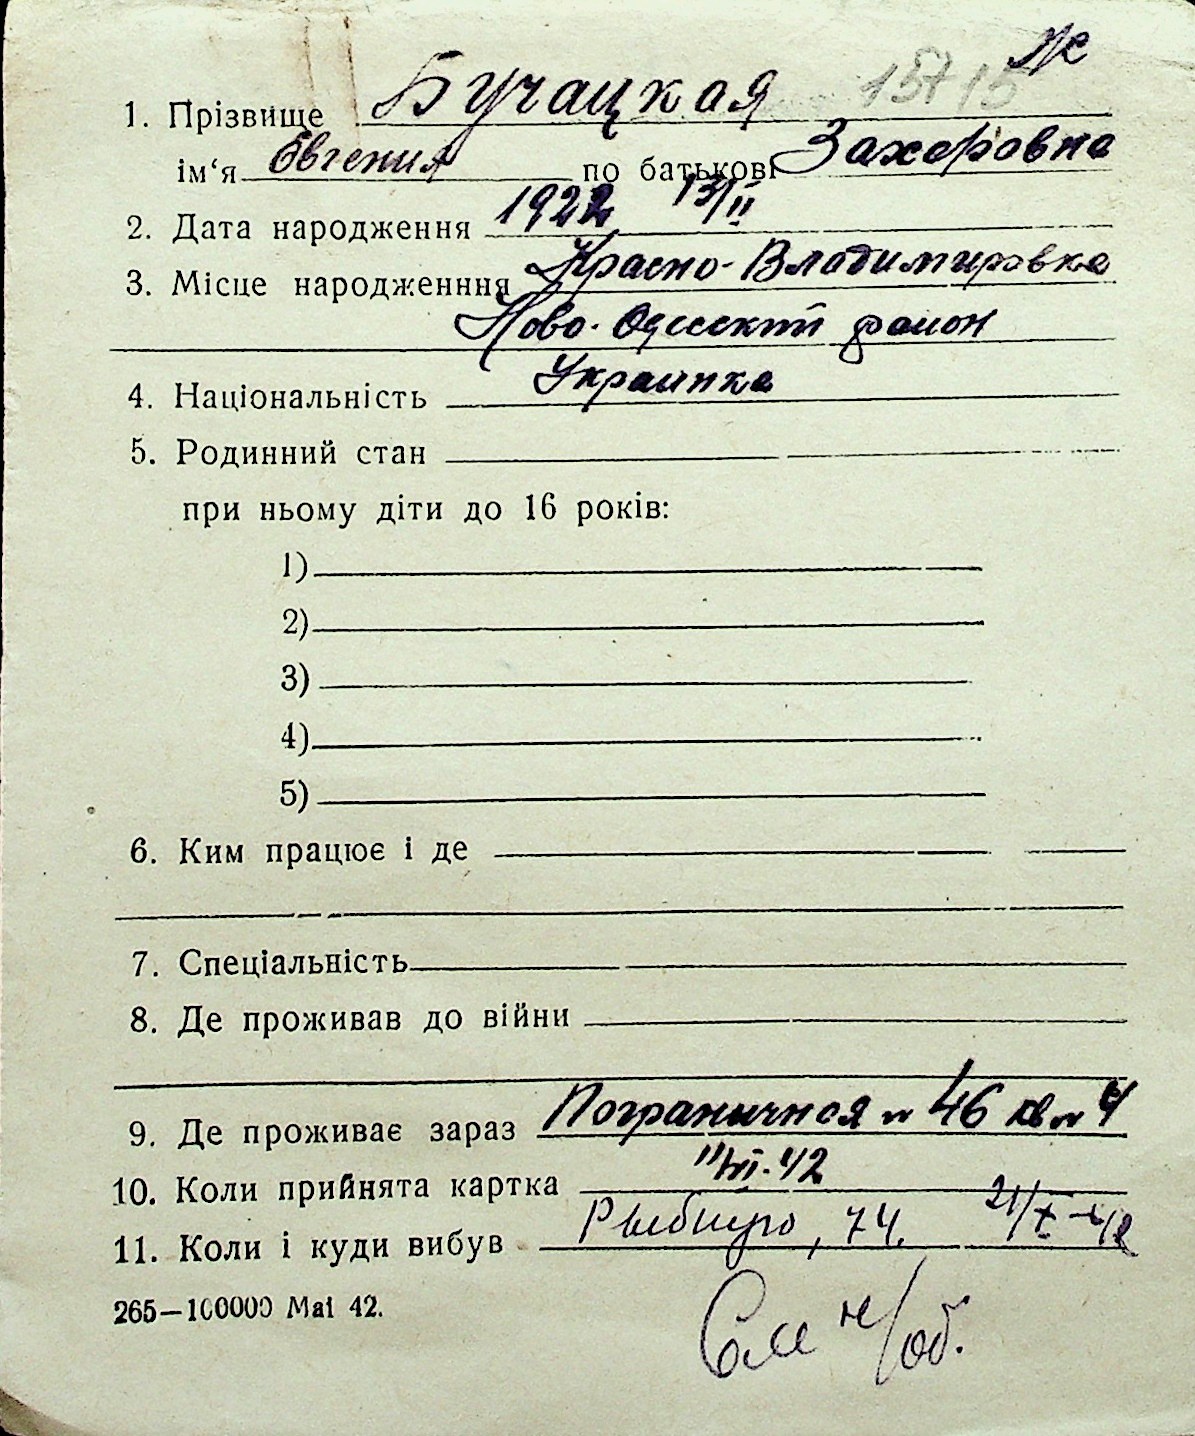 Ж
15715
1. Прізвище Бучацкая
ім‘я Евгения по батькові Захаровна
2. Дата народження 1922 13/II
3. Місце народженння Красно-Владимировка
Ново-Одесский район
4. Національність Украинка
5. Родинний стан
при ньому діти до 16 років:
1)
2)
3)
4)
5)
6. Ким працює і де
7. Спеціальність
8. Де проживав до війни
9. Де проживає зараз Пограничная № 46 кв № 4
10. Коли прийнята картка 11/VI-42
11. Коли і куди вибув 74. 21/X-42
265—100000 Mai 42.
См н/об.